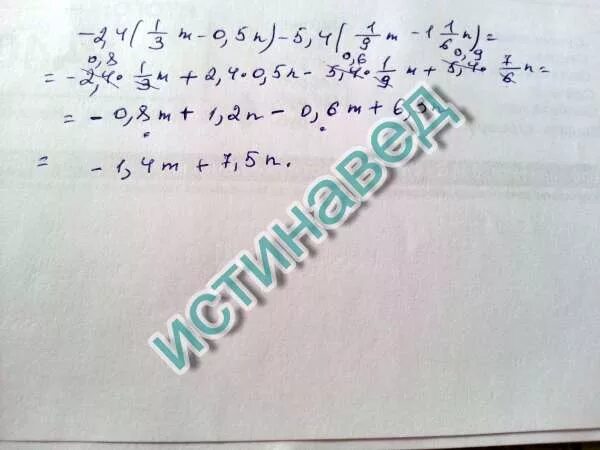 -2,4(1/3 m - 0,5n) - 5,4(1/9 m - 1 1/6 n) =
0,8 0,6 0,9
= -2,4 · 1/3 m + 2,4 · 0,5n - 5,4 · 1/9 m + 5,4 · 7/6 n =
= -0,8m + 1,2n - 0,6m + 6,3n
= -1,4m + 7,5n.
истинавед